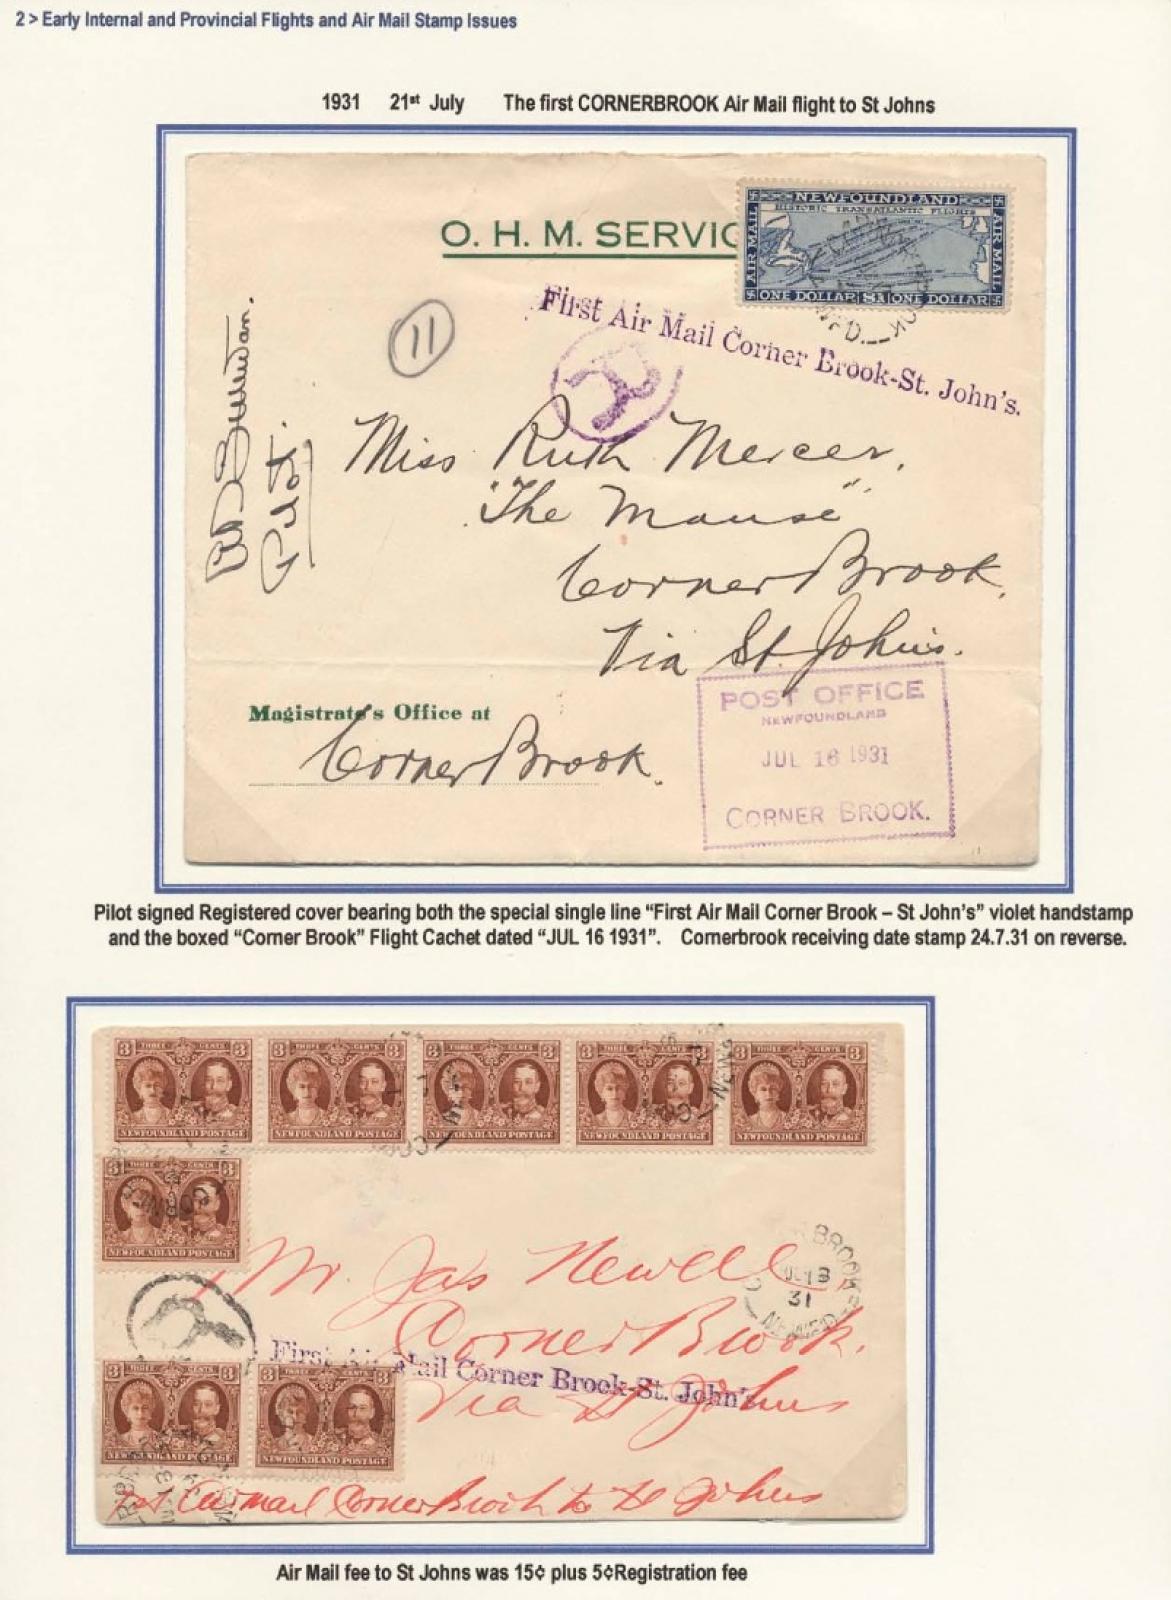 2 > Early Internal and Provincial Flights and Air Mail Stamp Issues
1931 21st July The first CORNERBROOK Air Mail flight to St Johns
O. H. M. SERVIC
NEWFOUNDLAND
HISTORIC TRANSATLANTIC FLIGHTS
AIR MAIL
AIR MAIL
ONE DOLLAR $1 ONE DOLLAR
First Air Mail Corner Brook-St. John's.
11
R
Pilot.
Miss Ruth Mercer,
"The Manse"
Corner Brook,
Via St. John's.
Magistrate's Office at
Corner Brook.
POST OFFICE
NEWFOUNDLAND
JUL 16 1931
CORNER BROOK.
Pilot signed Registered cover bearing both the special single line “First Air Mail Corner Brook – St John's” violet handstamp
and the boxed “Corner Brook” Flight Cachet dated “JUL 16 1931”. Cornerbrook receiving date stamp 24.7.31 on reverse.
3 THREE CENTS 3
NEWFOUNDLAND POSTAGE
3 THREE CENTS 3
NEWFOUNDLAND POSTAGE
3 THREE CENTS 3
NEWFOUNDLAND POSTAGE
3 THREE CENTS 3
NEWFOUNDLAND POSTAGE
3 THREE CENTS 3
NEWFOUNDLAND POSTAGE
3 THREE CENTS 3
NEWFOUNDLAND POSTAGE
BROOK
31
NEWF'D
Mr. Jas Newell
Corner Brook.
Via St Johns
R
First Air Mail Corner Brook-St. John's
3 THREE CENTS 3
NEWFOUNDLAND POSTAGE
3 THREE CENTS 3
NEWFOUNDLAND POSTAGE
1st Airmail Corner Brook to St Johns
Air Mail fee to St Johns was 15¢ plus 5¢Registration fee